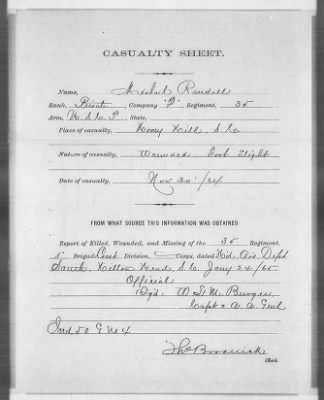 CASUALTY SHEET.
Name, Michael Randall
Rank, Private, Company "F", Regiment, 35
Arm, U.S.C.T., State,
Place of casualty, Honey Hill S. Co
Nature of casualty, Wounded Foot Slight
Date of casualty, Nov 30 /64
FROM WHAT SOURCE THIS INFORMATION WAS OBTAINED.
Report of Killed, Wounded, and Missing of the 35 Regiment,
1" Brigade, Coast Division, Corps, dated Hd. Qrs. Dept
South Hilton Head, S.Co. Jany 24/65
Official
Sgd. W L M Burger
Capt & A. A. Genl
Ind 50 G No 4
Clerk.